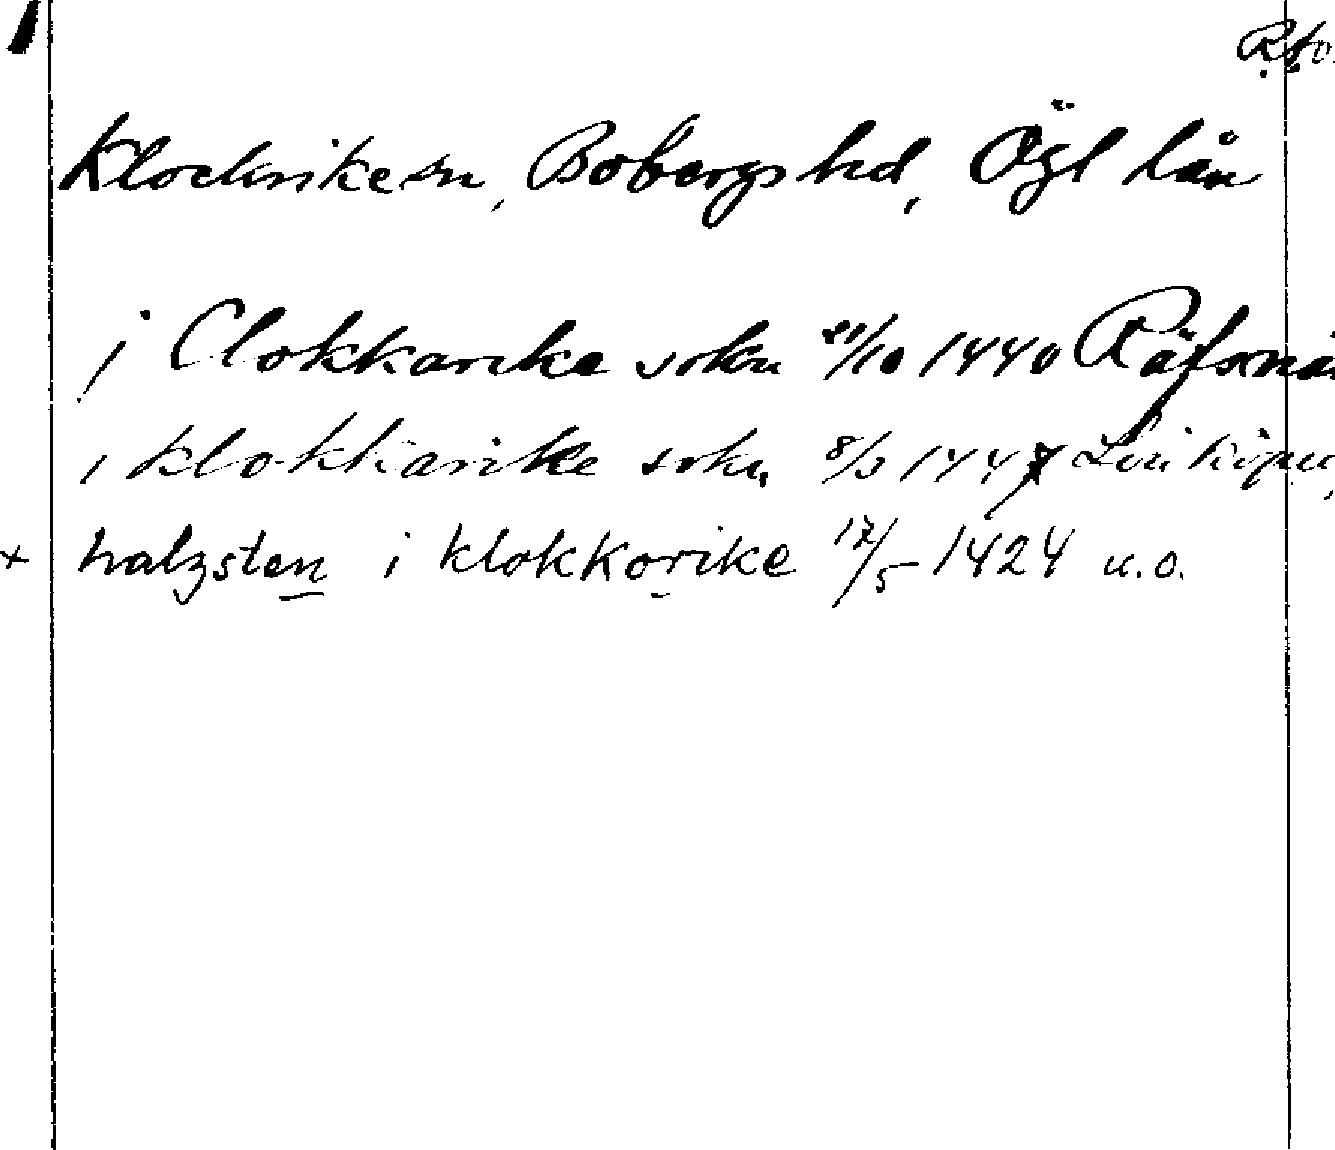 Klockrike sn, Bobergs hd, Ögl län
j Clokkarike sokn 21/10 1440 Räfsnäs
i klokkarike sokn 8/3 1447 Linköpin
+ halzsten i klokkorike 17/5 1424 u.o.